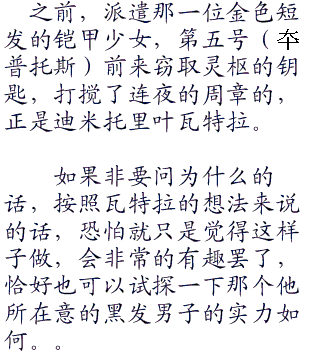 之前，派遣那一位金色短
发的铠甲少女，第五号（夲
普托斯）前来窃取灵枢的钥
匙，打搅了连夜的周章的，
正是迪米托里叶瓦特拉。
如果非要问为什么的
话，按照瓦特拉的想法来说
的话，恐怕就只是觉得这样
子做，会非常的有趣罢了，
恰好也可以试探一下那个他
所在意的黑发男子的实力如
何。。